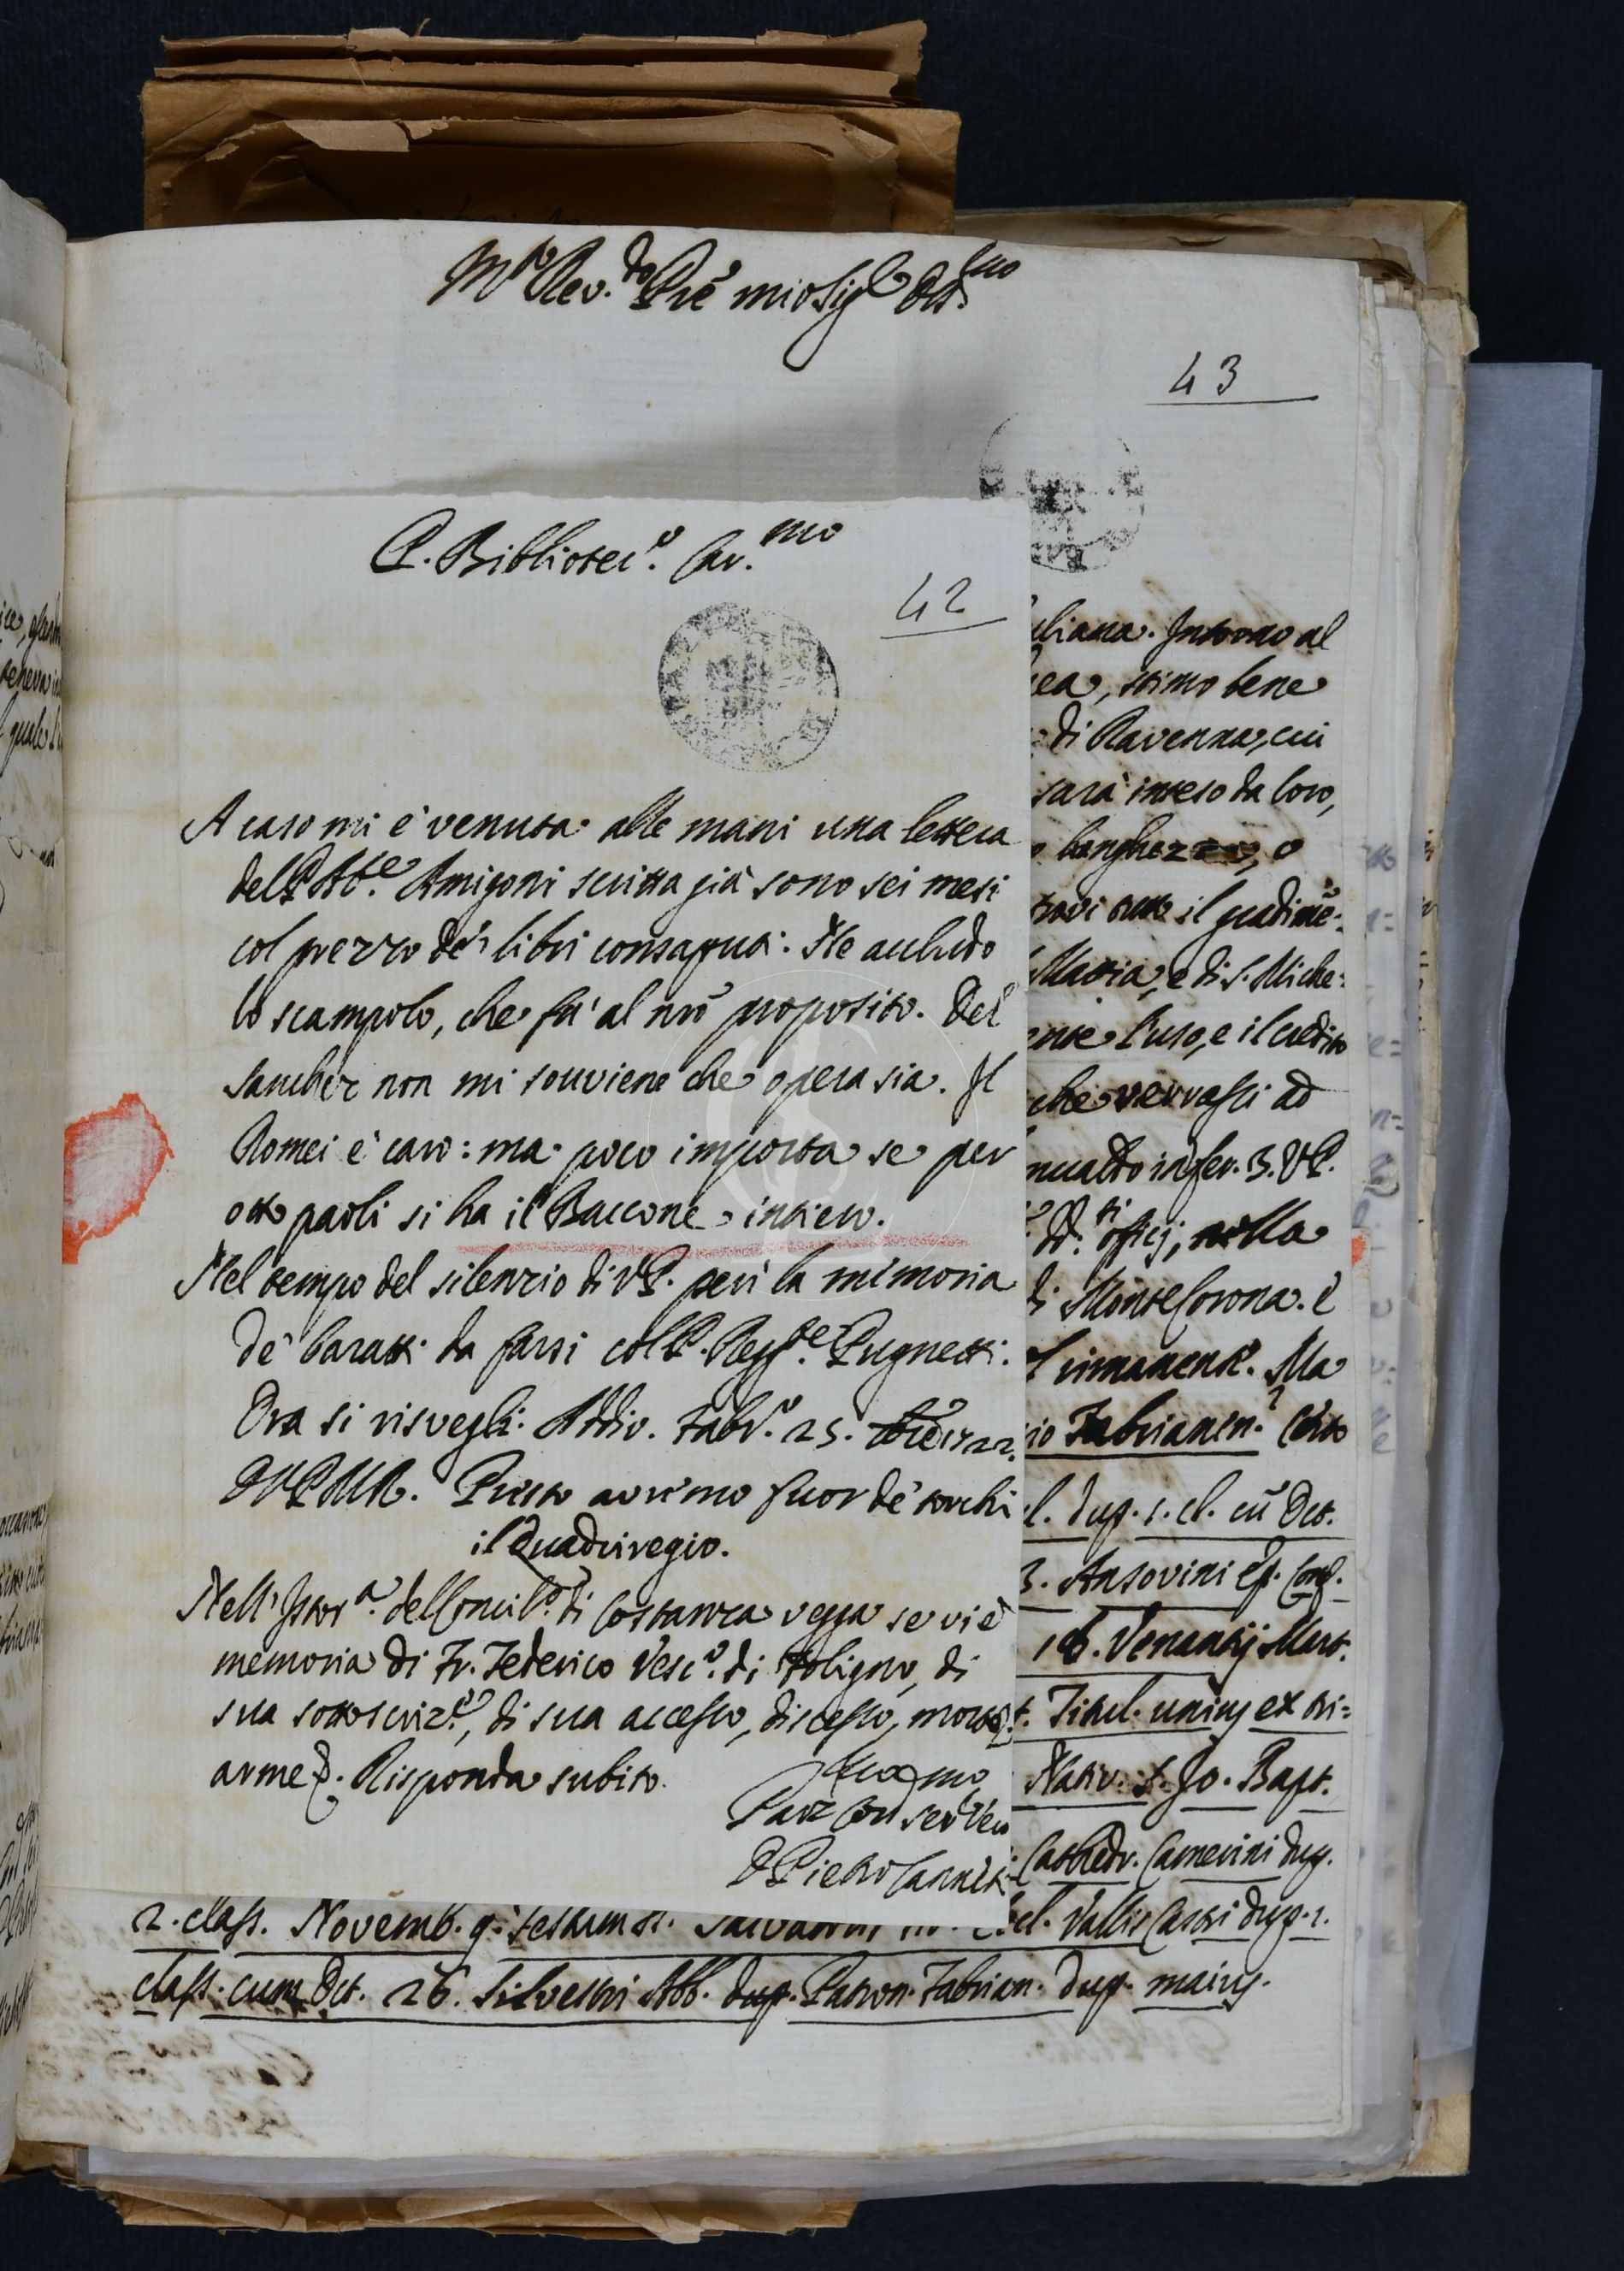 M.to Rev.do Pre mio Sig.e Oss.mo
43
P. Bibliotec.o Car.mo
42
A caso mi è venuta alle mani una lettera
del P. Ab.te Amigoni scritta già sono sei mesi
col prezzo de' libri consaputi. Ne acchiudo
lo scampolo, che fù al nrō proposito. Del
Samber non mi souviene che opera sia. Il
Romei è caro: ma poco importa se per
otto paoli si ha il Baccone intiero.
Nel tempo del silenzio di V.P. perì la memoria
de' baratti da farsi col P. Regg.te Pugnetti.
Ora si risvegli. Addio. Fabr.o 25. 1722.
D V P M R. Presto avremo fuor de' torchi
il Quadriregio.
Nell'Istor.a del Concil.o di Costanza vegga se vi è
memoria di Fr. Federico Vesc.o di Foligno, di
sua sottoscriz.e, di sua accesso, discesso, morte
arme &. Risponda subito.
Ser Vero
D Pietro Canneti
liana. Intorno al
ea, stimo bene
di Ravenna, cui
sarà inteso da loro,
o
trovi il gradimē=
Maria, e di S. Miche=
l'uso, e il credito
che ad
in fer. 3. V P.
D.ti officj, nella
di Monte Corona. è
rimanente. Ma
io Fabrianen. Certo
l. dup. 1. cl. cū Oct.
3. Ansovini Ep. Conf.
18. Venantij Mart.
t. Titul. unius ex tri=
Nativ. S. Jo. Bapt.
Cathedr. Camerini dup.
2. class. Novemb. 9. festum Ss. Salvatoris Eccl. Vallis Castri dup. 1.
class. cum Oct. 26. Silvestri Abb. dup. Patron. Fabrian. dup. maius.